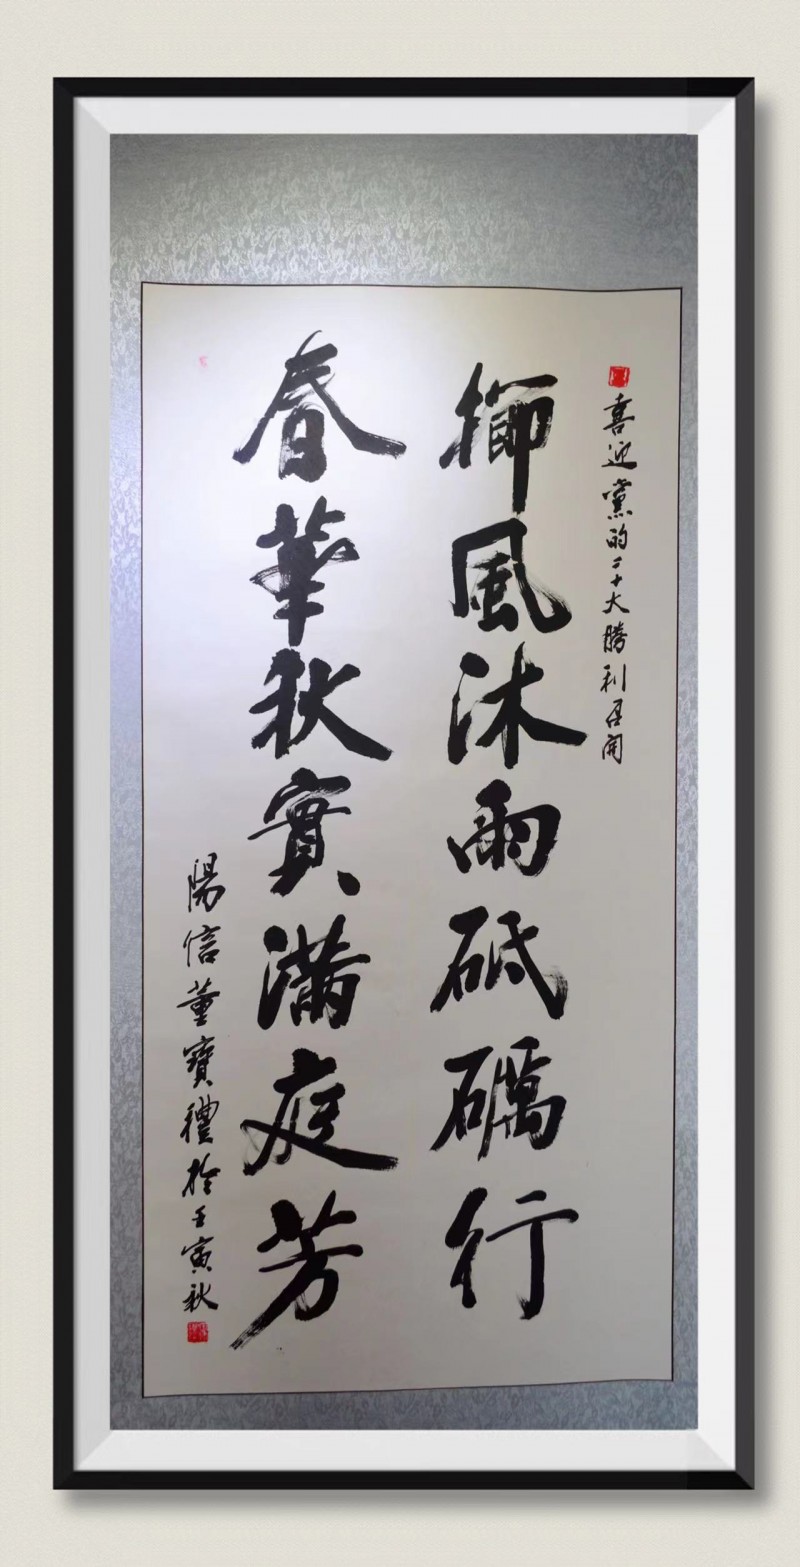 喜迎黨的二十大勝利召開
櫛風沐雨砥礪行
春華秋實滿庭芳
陽信董寶禮於壬寅秋